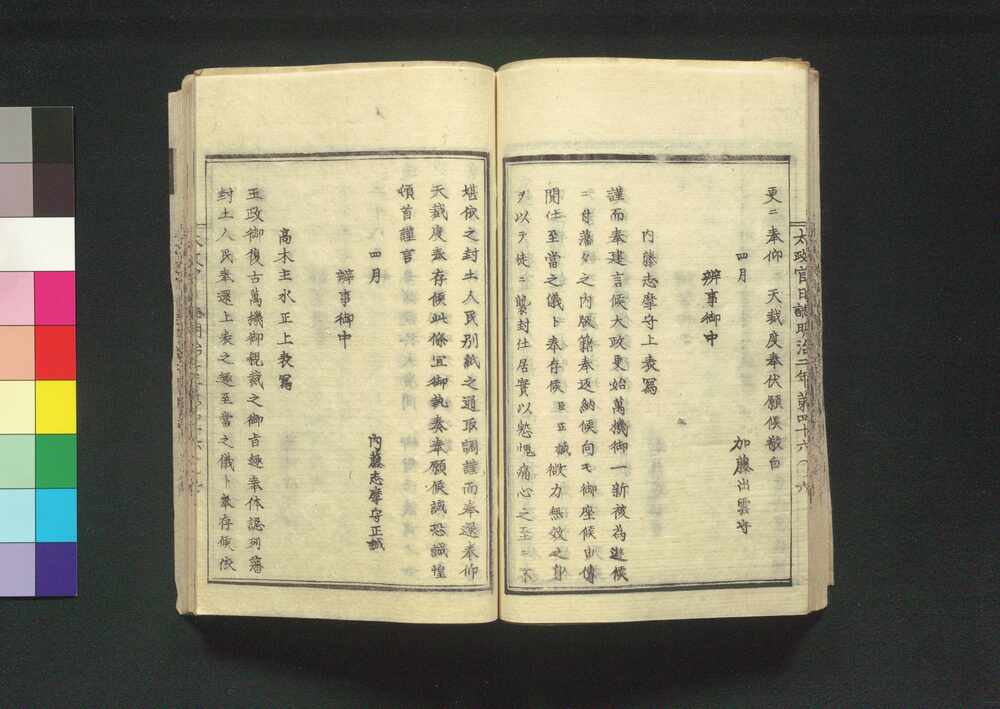 太政官日誌明治二年第四十六
更ニ奉仰 天裁度奉伏願候敬白
四月
加藤出雲守
辨事御中
内藤志摩守上表寫
謹而奉建言候大政更始萬機御一新被為遊候
ニ付藩々之内版籍奉返納候向モ御座候由傳
聞仕至當之儀ト奉存候正誠微力無效之身
ヲ以テ徒ニ襲封仕居實以慙愧痛心之至ニ不
堪依之封土人民別紙之通取調謹而奉還奉仰
天裁度奉存候此條宜御執奏奉願候誠恐誠惶
頓首謹言
四月
内藤志摩守正誠
辨事御中
高木主水正上表寫
王政御復古萬機御親裁之御旨趣奉体認列藩
封土人民奉還上表之趣至當之儀ト奉存候依